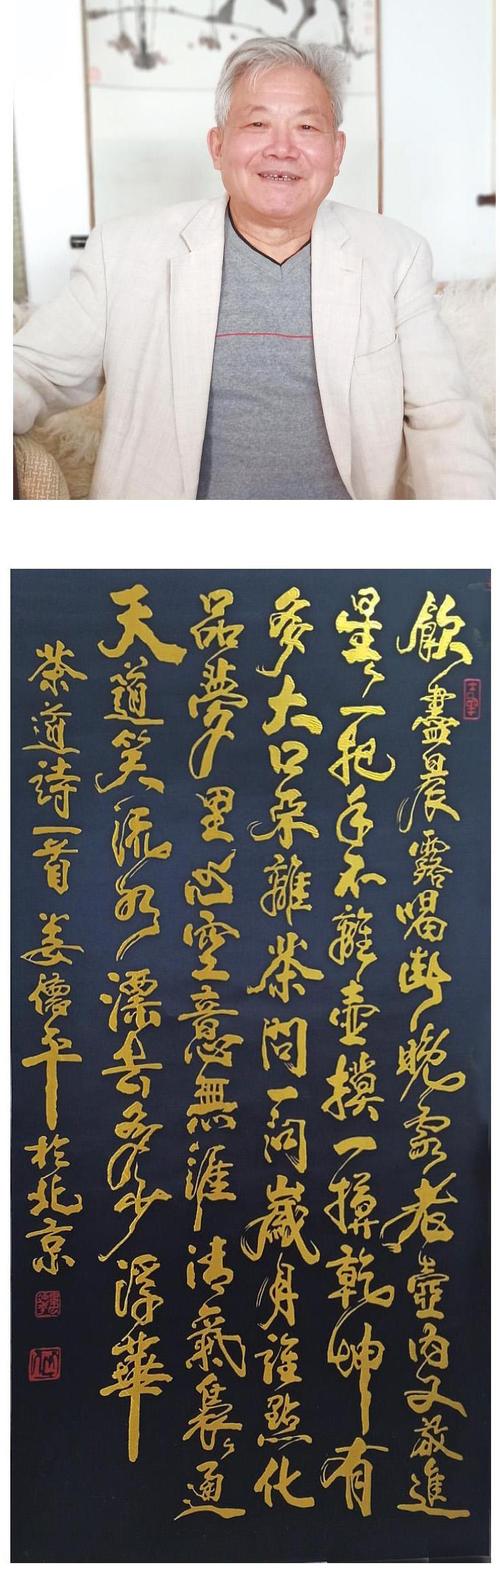 飲盡晨露喝断晚霞老壺内又放進
星々一把手不離壺摸一摸乾坤有
多大口不離茶問一問歲月誰點化
品夢里心空意無涯清氣裊々通
天道笑流水漂去多少浮華
茶道詩一首 姜平於北京